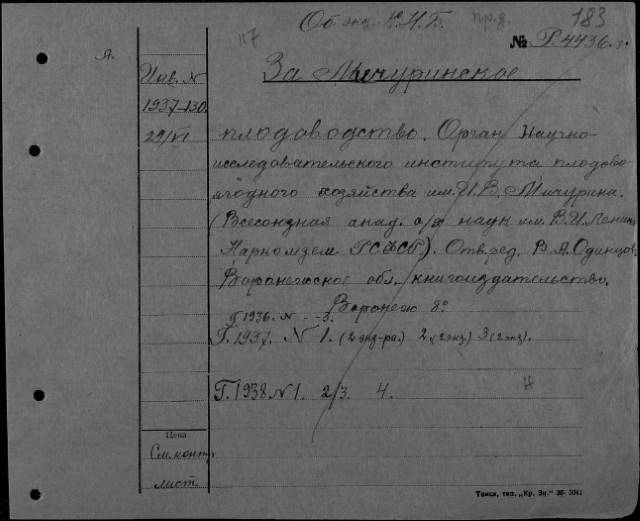 183
117
№ Р.4436
Я.
Инв. N
1937-130.
29/VI
За Мичуринское
плодоводство. Орган Научно-
исследовательского института плодово
ягодного хозяйства им. И.В. Мичурина.
(Всесоюзная акад. с/х наук им. В.И. Ленина
Наркомзем РСФСР). Отв. ред. В.А. Одинцов,
Воронежское обл. книгоиздательство.
Воронеж 8º
Г 1936. N - - 3.
Г. 1937. N 1. (2 экз-ра.) 2 (2 экз) 3 (2 экз).
Г. 1938 N 1. 2/3. 4.
Н
Цена
См. конт.
лист.
Томск, тип. „Кр. Зн.“